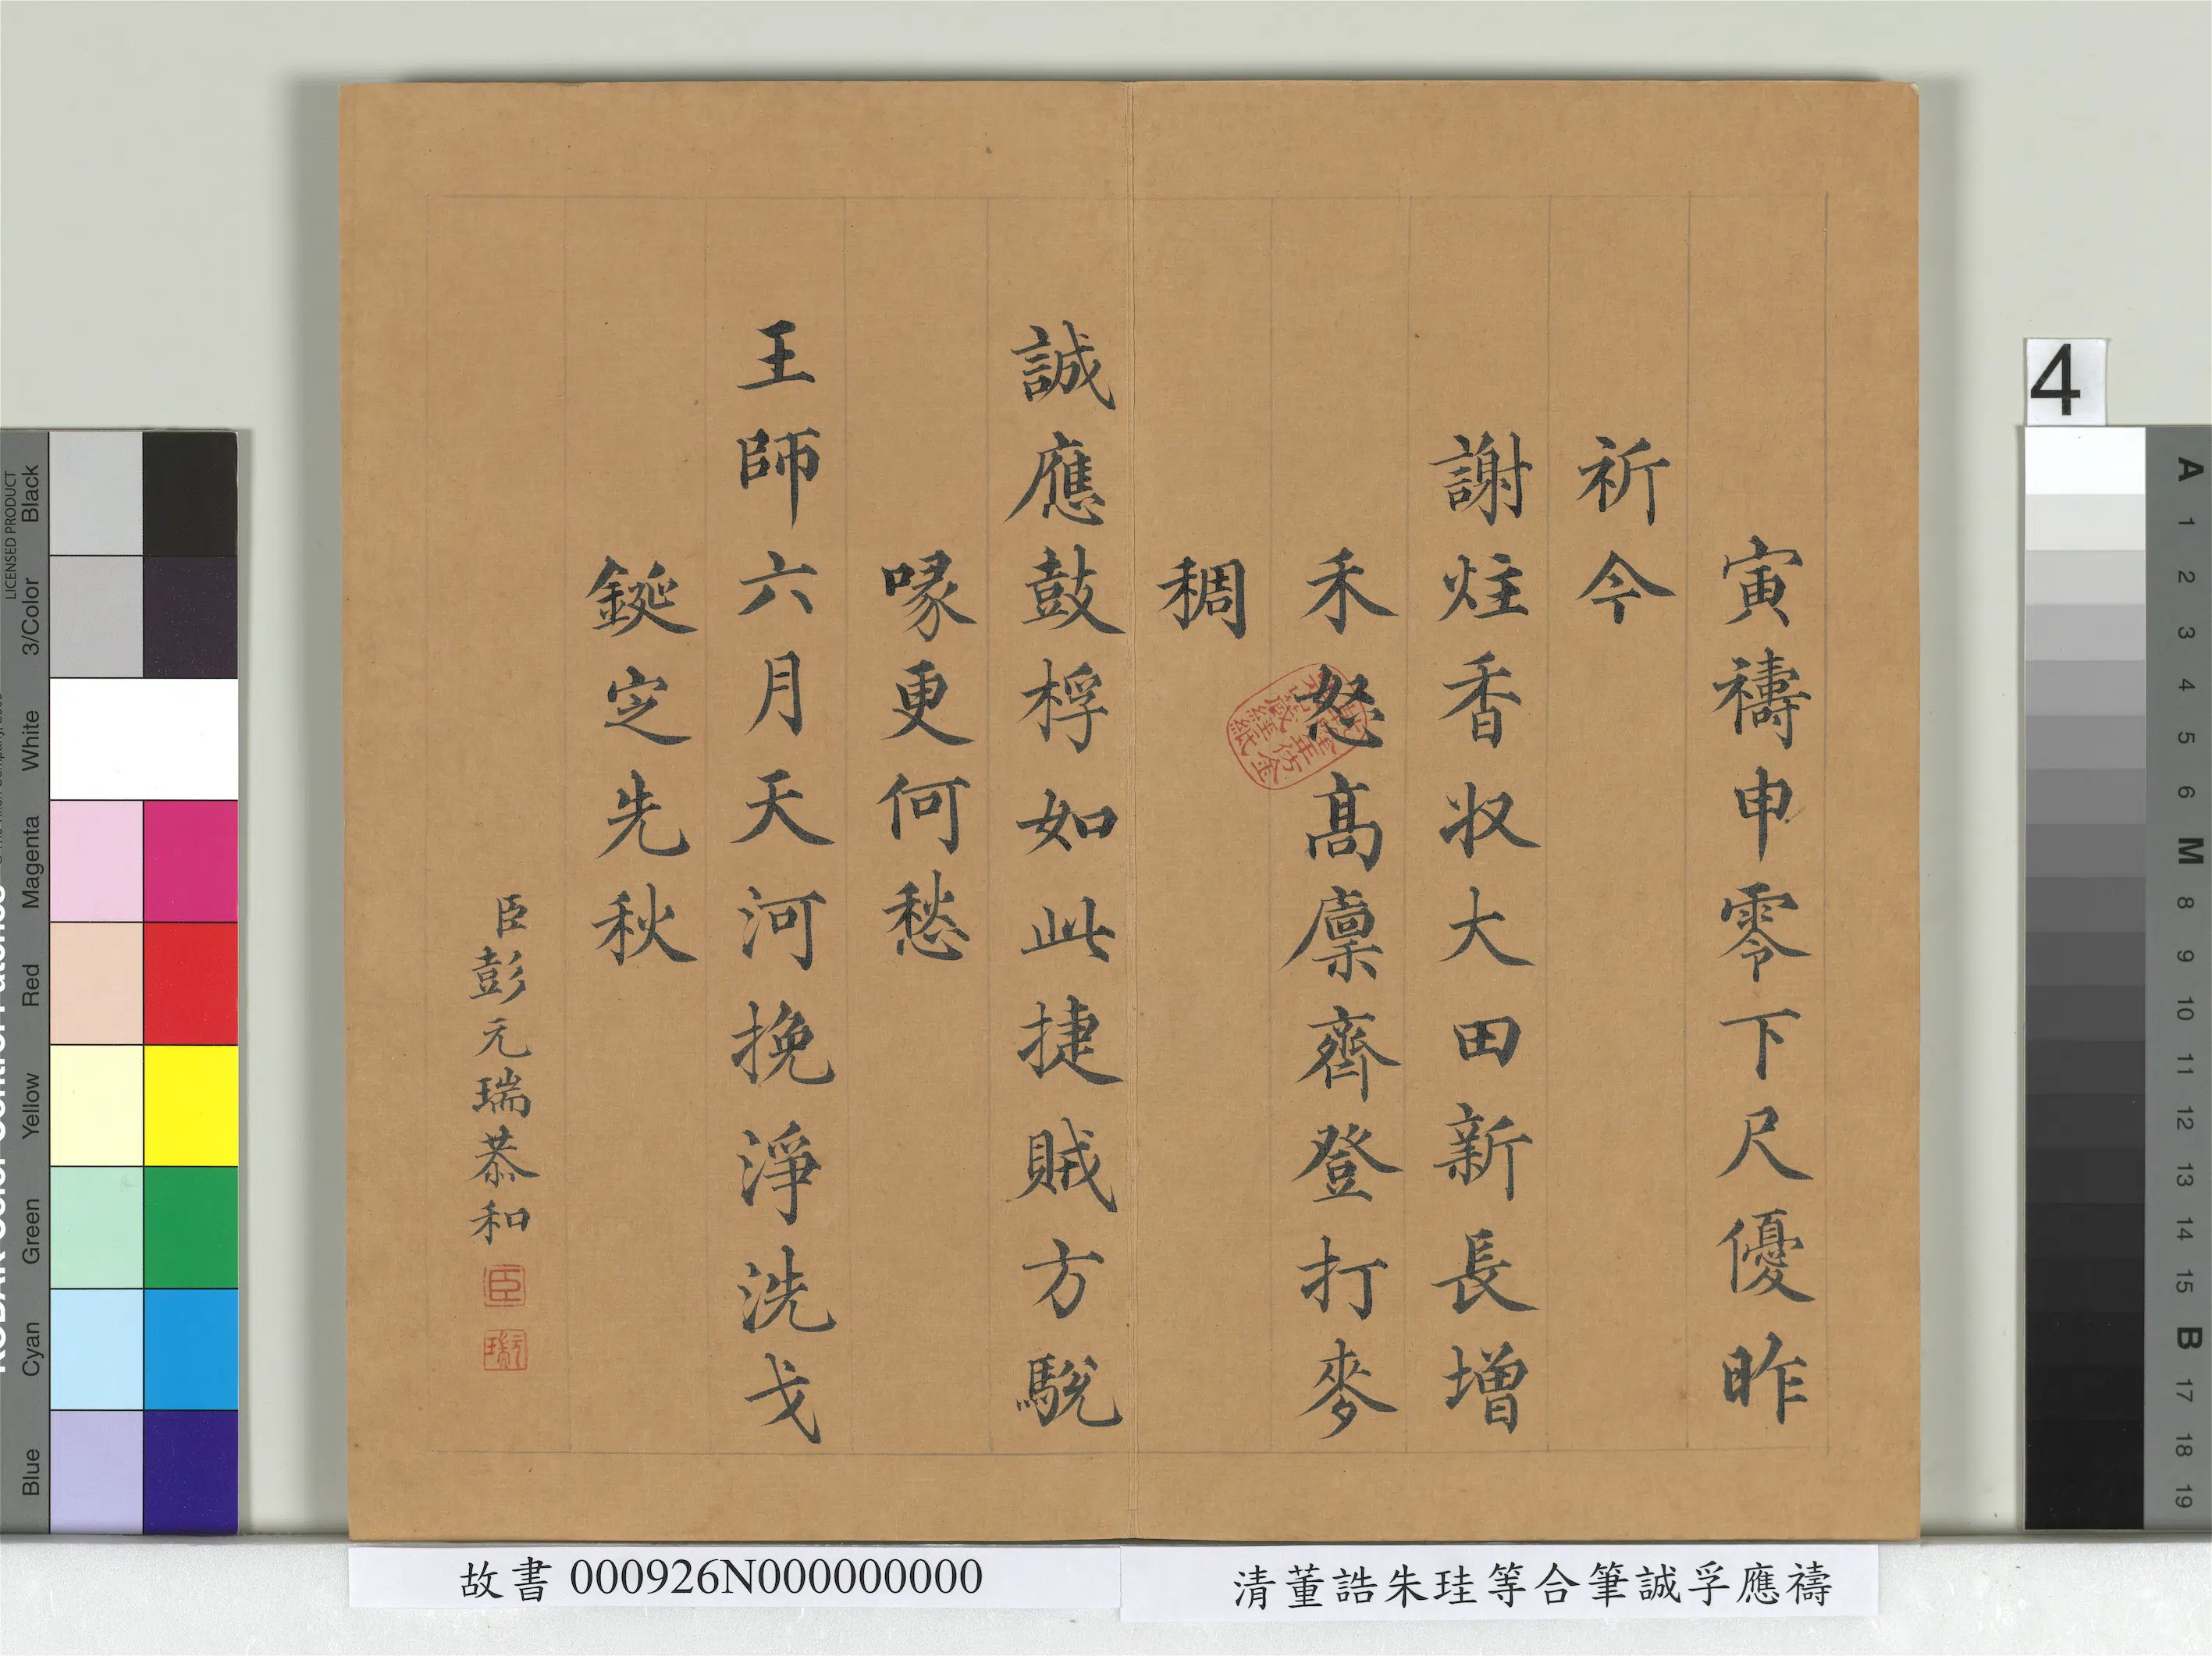 寅禱申零下尺優昨
祈今
謝炷香收大田新長增
禾怒高廪齊登打麥
稠
誠應鼓桴如此捷賊方駾
喙更何愁
王師六月天河挽淨洗戈
鋋定先秋
臣彭元瑞恭和
臣
元瑞
乾隆年仿金
粟山藏經紙
故書 000926N000000000
清董誥朱珪等合筆誠孚應禱
4
LICENSED PRODUCT
Black
3/Color
White
Magenta
Red
Yellow
Green
Cyan
Blue
A
1
2
3
4
5
6
M
8
9
10
11
12
13
14
15
B
17
18
19